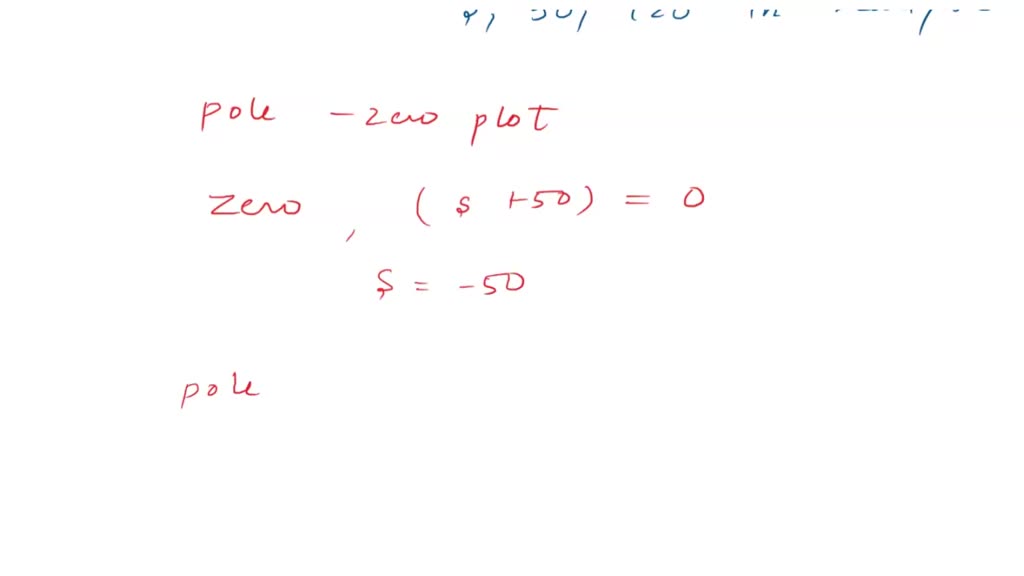 pole - zero plot
zero , ( s +50) = 0
s = -50
pole